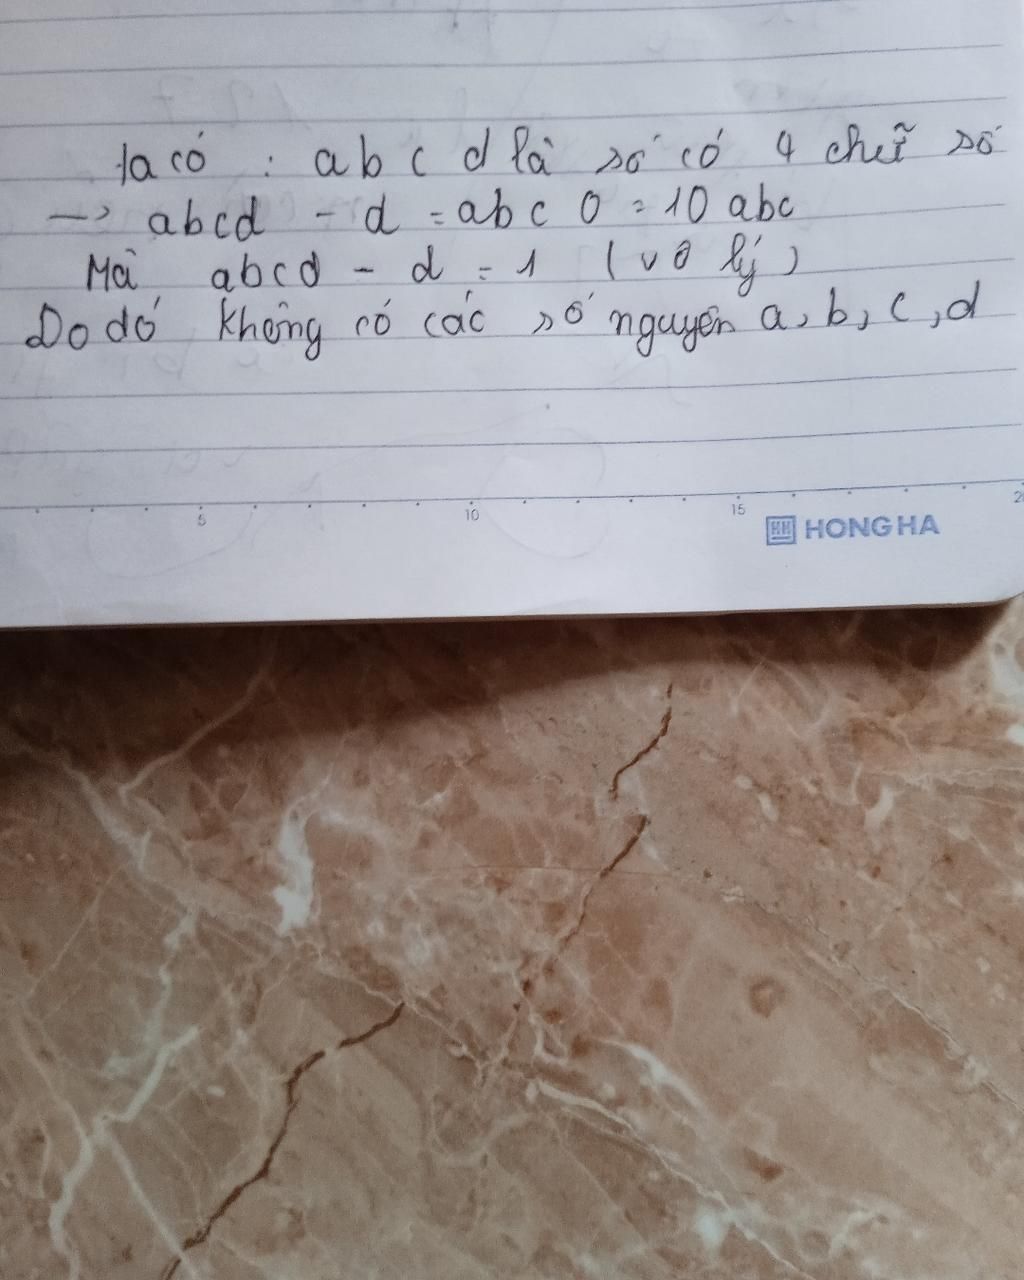 Ta có : a b c d là số có 4 chữ số
-> abcd - d = abc 0 = 10 abc
Mà abcd - d = 1 (vô lý)
Do dó không có các số nguyên a, b, c, d
5 10 15 20
HH HONG HA